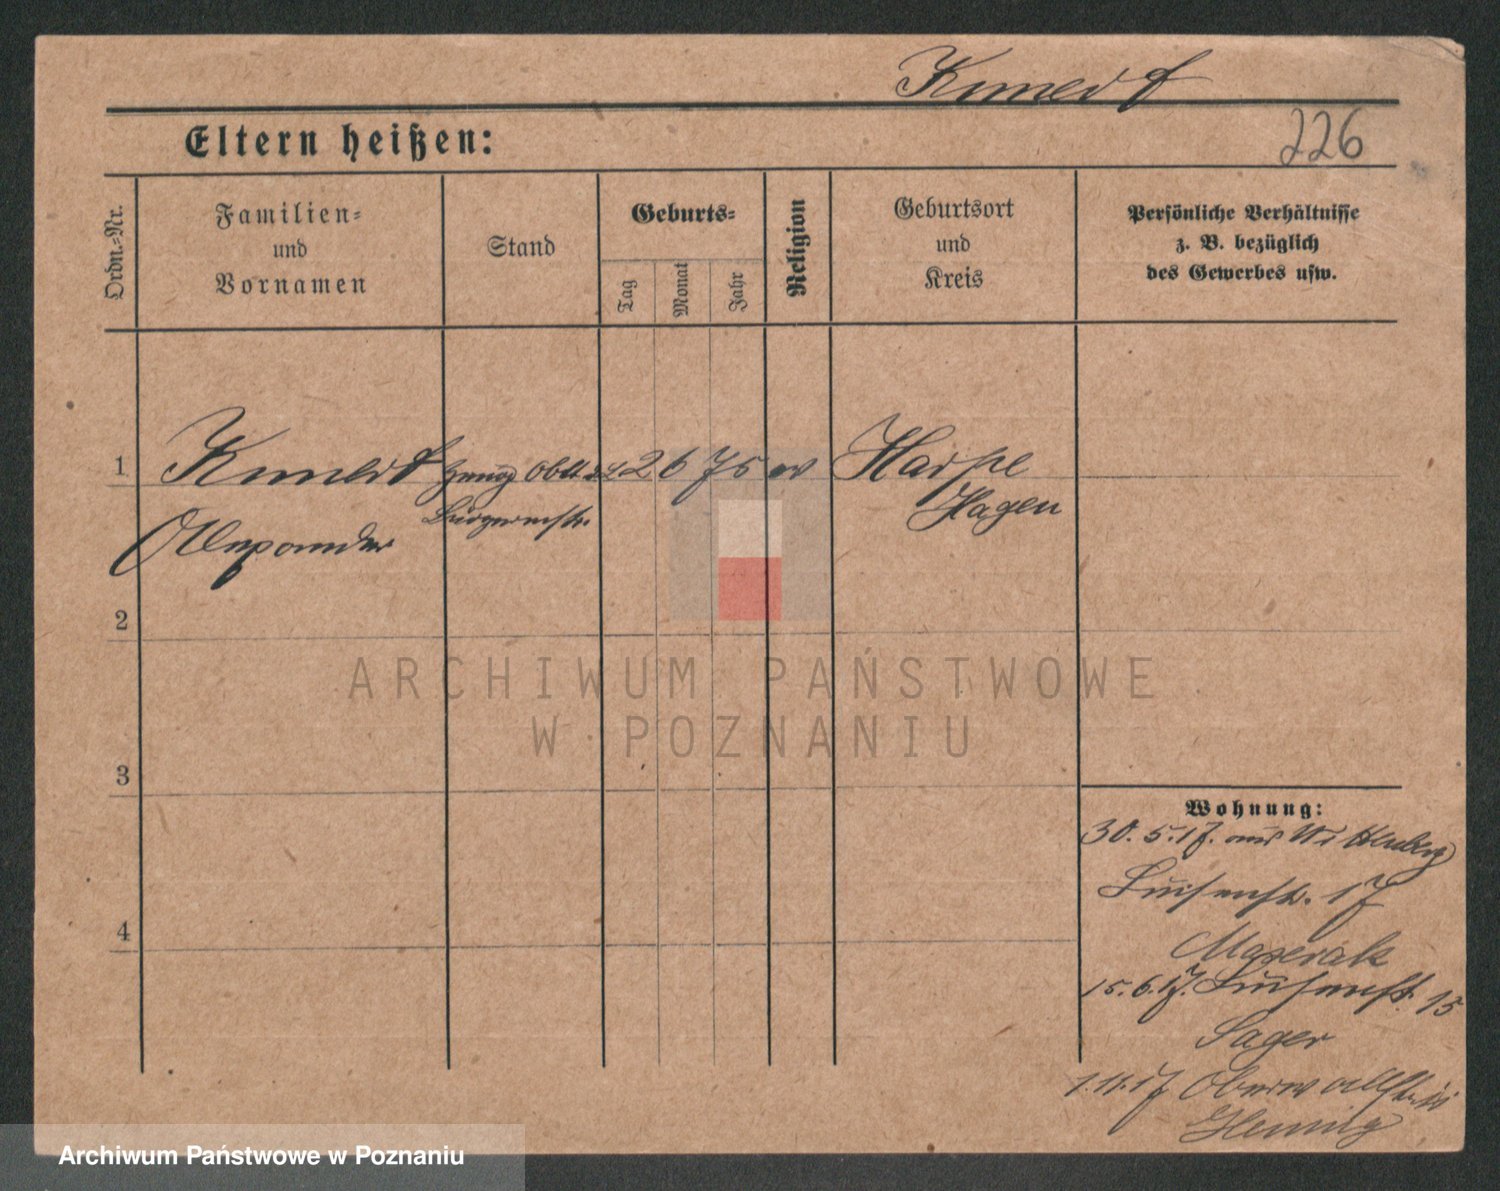 Kunerdt
Eltern heißen:
226
Ordn.-Nr.
Familien-
und
Vornamen
Stand
Geburts-
Tag
Monat
Jahr
Religion
Geburtsort
und
Kreis
Persönliche Verhältnisse
z. B. bezüglich
des Gewerbes usw.
1
2 6 75 ev Haspe
Hagen
Alexander
2
3
4
Wohnung:
30. 5. 17. aus Wittenberg
Luisenstr. 17
15. 6. 17. Luisenstr. 15
Sager
1. 11. 17 Oberwallstr.
Hennig
ARCHIWUM PAŃSTWOWE
W POZNANIU
Archiwum Państwowe w Poznaniu